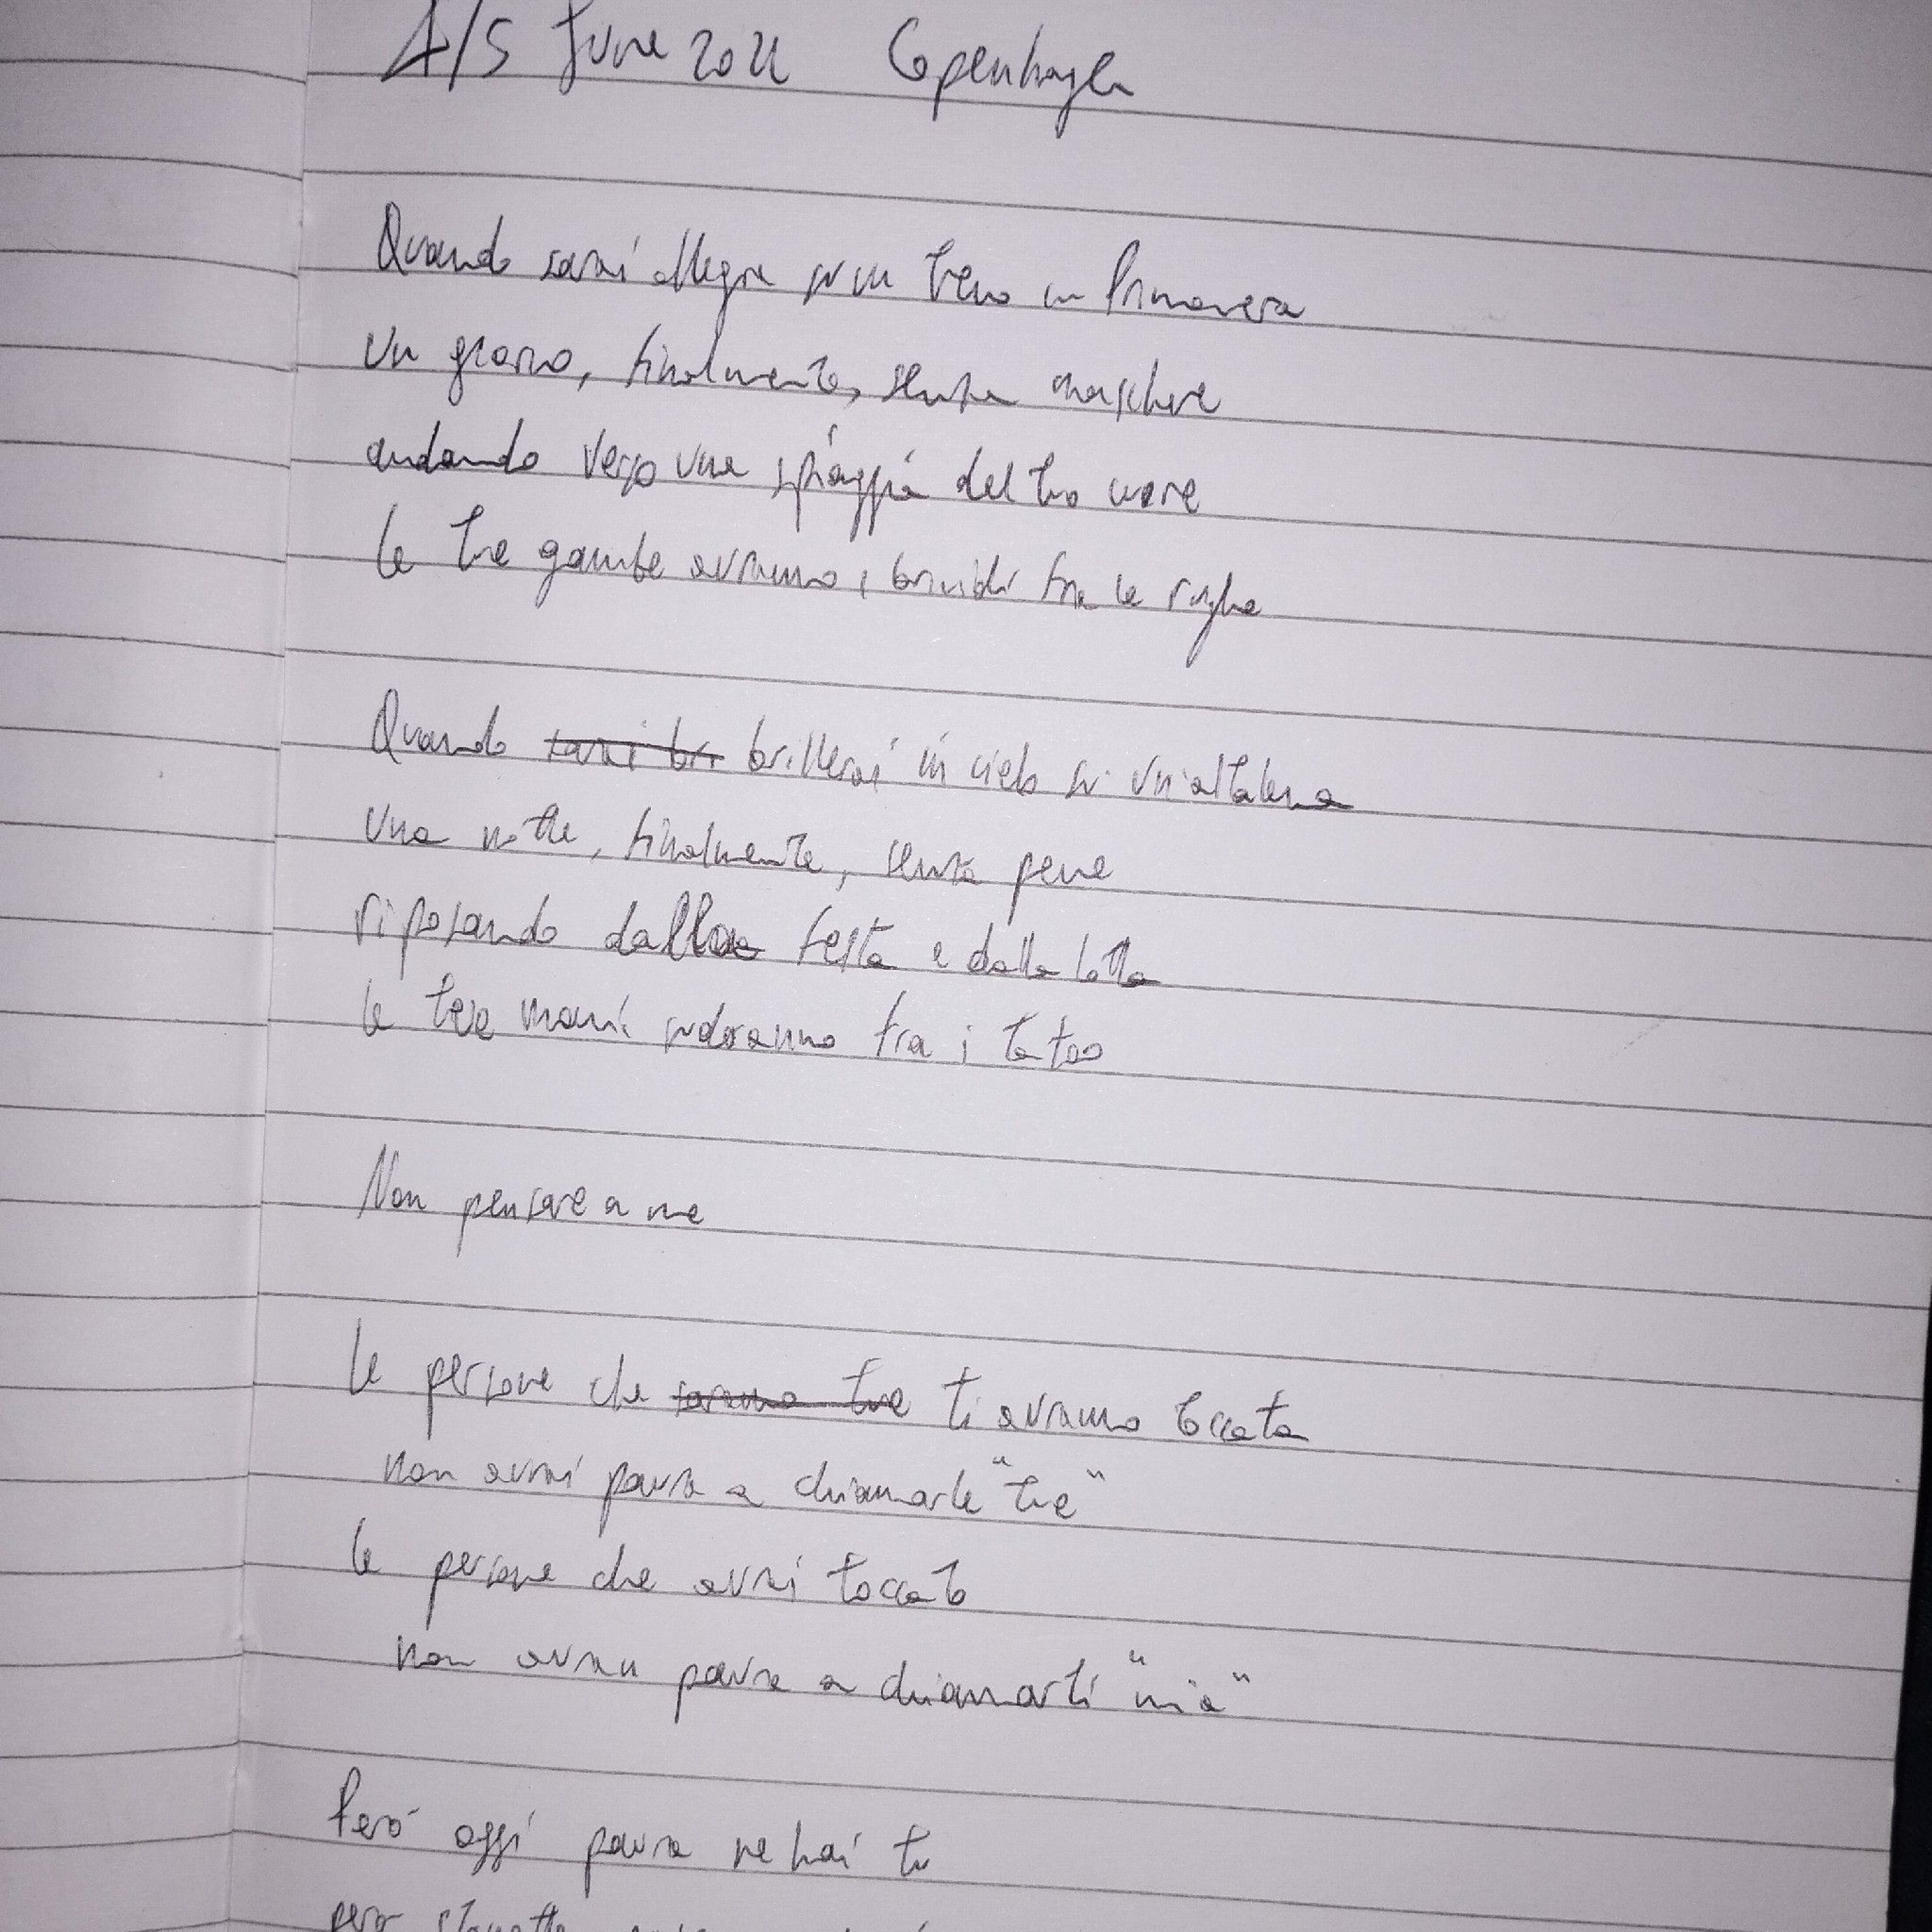 4/5 June 2021 Copenhagen
Quando sarai allegra su un treno in Primavera
un giorno, finalmente, senza maschere
andando verso una spiaggia del tuo cuore
le tue gambe avranno i brividi fra le rughe
Quando sarai bri brillerai in cielo su un'altalena
una notte, finalmente, senza pene
riposando dalla festa e dalla lotta
le tese mani suderanno tra i tatoo
Non pensare a me
le persone che saranno tue ti avranno toccata
non avrai paura a chiamarle "tue"
le persone che avrai toccato
non avran paura a chiamarti "mia"
Però oggi paura ne hai tu
però stanotte